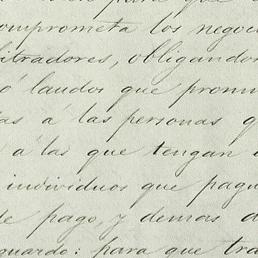 para que
comprometa los negoci
bitradores, obligandos
ó laudos que pronu
as á las personas q
á las que tengan
individuos que pagu
de pago, y demas d
guardo: para que tra